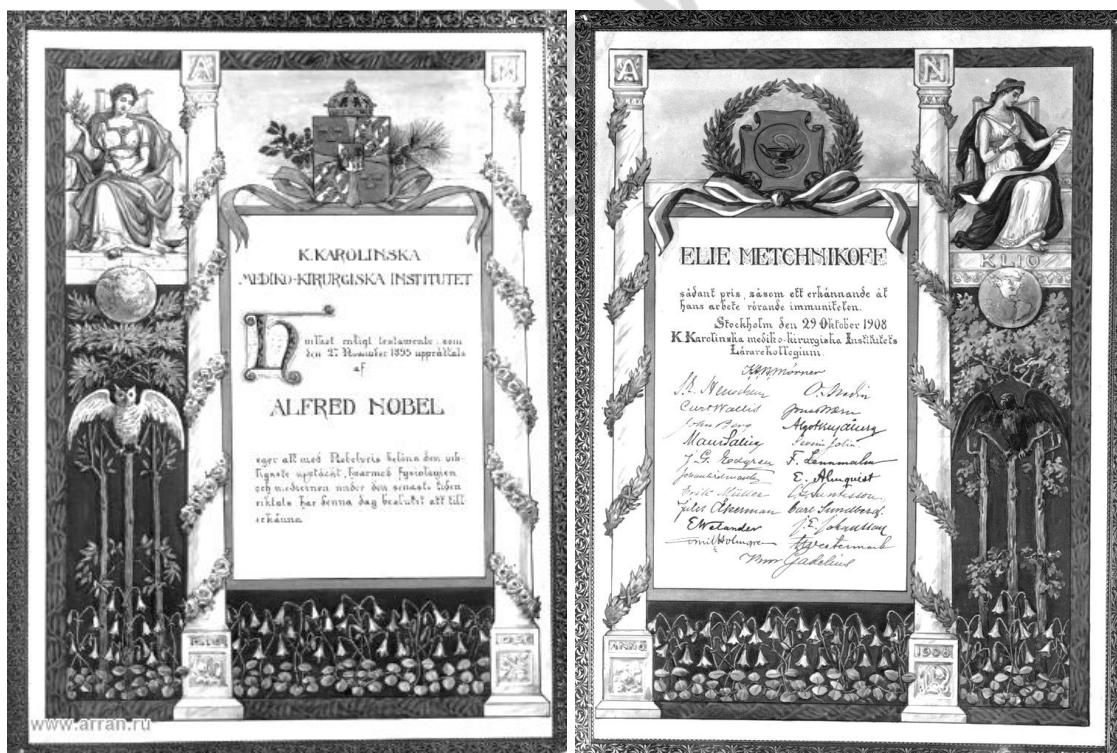 A
M
K. KAROLINSKA
MEDIKO-KIRURGISKA INSTITUTET
Hvilket enligt testamente, som
den 27 November 1895 upprättats
af
ALFRED NOBEL
eger att med Nobelpris belöna den vik-
tigaste upptäckt, hvarmed fysiologien
och medicinen under den senaste tiden
riktats, har denna dag beslutit att till-
erkänna
www.arran.ru
A
N
KLIO
ELIE METCHNIKOFF
sådant pris, såsom ett erkännande åt
hans arbete rörande immuniteten.
Stockholm den 29 Oktober 1908
K. Karolinska mediko-kirurgiska Institutets
Lärarekollegium.
Mörner
Curt Wallis
John Berg
J. G. Edgren F. Lennmalm
E. Almquist
Erik Müller C. G. Santesson
Jules Åkerman Carl Sundberg.
E Welander J. E. Johansson
Emil Holmgren Westermark
Gadelius
ANNO
1908